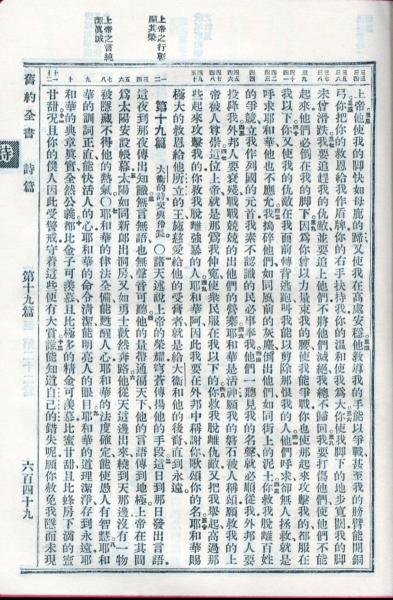 上帝他使我的脚快如母鹿的蹄又使我在高處安穩他教導我的手能以爭戰甚至我的膀臂能開銅
弓你把你的救恩給我作盾牌你的右手扶持我你的溫和使我為大你使我脚下的地步寬闊我的脚
未曾滑跌我要追趕我的仇敵並要追上他們不將他們滅絕我總不歸回我要打傷他們使他們不能
起來他們必倒在我的脚下因為你曾以力量束我的腰使我能爭戰你也使那起來攻擊我的都服在
我以下你又使我的仇敵在我面前轉背逃跑叫我能以剪除那恨我的人他們呼求卻無人拯救就是
呼求耶和華他也不應允我搗碎他們如同風前的灰塵倒出他們如同街上的泥土你救我脫離百姓
的爭競立我作列國的元首我素不認識的民必事奉我他們一聽見我的名聲就必順從我外邦人要
投降我外邦人要衰殘戰戰兢兢的出他們的營寨耶和華是活神願我的磐石被人稱頌願救我的上
帝被人尊崇這位上帝就是那為我伸冤使衆民服在我以下的你救我脫離仇敵又把我舉起高過那
些起來攻擊我的你救我脫離強暴的人耶和華阿因此我要在外邦中稱謝你歌頌你的名耶和華賜
極大的救恩給他所立的王施慈愛給他的受膏者就是給大衛和他的後裔直到永遠
上帝之行彰顯其榮
第十九篇 大衛的詩交與伶長 ○諸天述說上帝的榮耀穹蒼傳揚他的手段這日到那日發出言語
這夜到那夜傳出知識無言無語也無聲音可聽他的量帶通遍天下他的言語傳到地極上帝在其間
為太陽安設帳幕太陽如同新郎出洞房又如勇士歡然奔路他從天這邊出來繞到天那邊沒有一物
上帝之言純潔真誠
被隱藏不得他的熱氣○耶和華的律法全備能甦醒人心耶和華的法度確定能使愚人有智慧耶和
華的訓詞正直能快活人的心耶和華的命令清潔能明亮人的眼目耶和華的道理潔淨存到永遠耶
和華的典章真實全然公義都比金子可羨慕且比極多的精金可羨慕比蜜甘甜且比蜂房下滴的蜜
甘甜況且你的僕人因此受警戒守着這些便有大賞誰能知道自己的錯失呢願你赦免我隱而未現
舊約全書 詩篇 第十九篇 六百四十九
詩